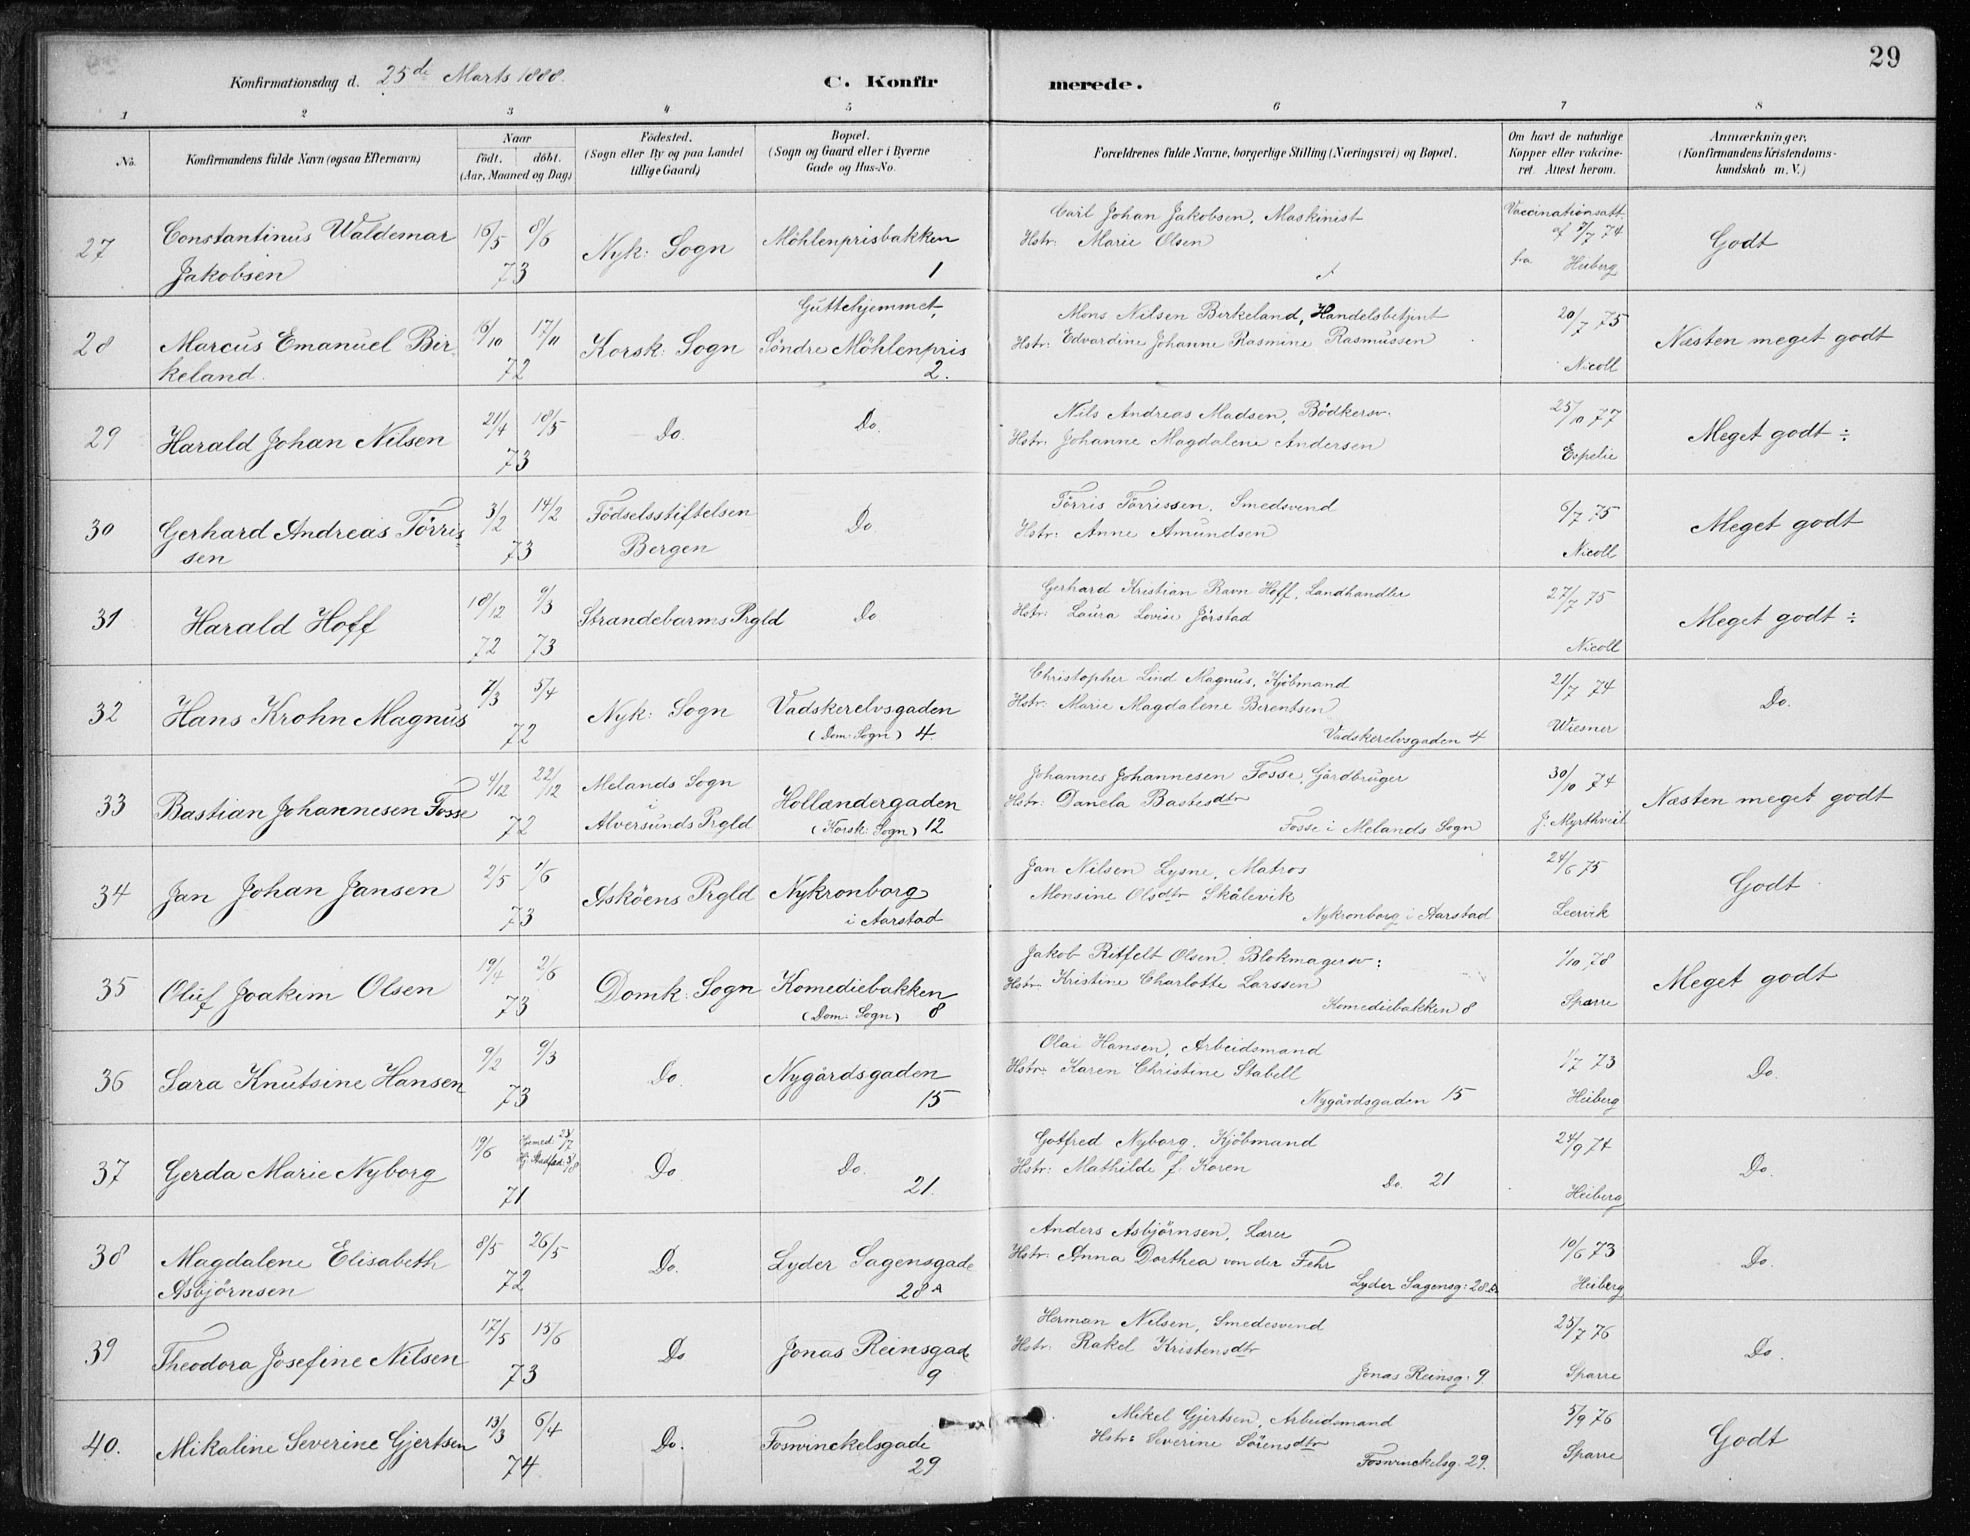 29
Konfirmationsdag d. 25de Marts 1888.
C. Konfirmerede.
1 2 3 4 5 6 7 8
No.
Konfirmandens fulde Navn (ogsaa Efternavn)
Naar
født. døbt.
(Aar, Maaned og Dag)
Fødested.
(Sogn eller By og paa Landet
tillige Gaard)
Bopæl.
(Sogn og Gaard eller i Byerne
Gade og Hus-No.
Forældrenes fulde Navne, borgerlige Stilling (Næringsvei) og Bopæl.
Om havt de naturlige
Kopper eller vakcine-
ret. Attest herom.
Anmærkninger.
(Konfirmandens Kristendoms-
kundskab m. V.)
27
Constantinus Waldemar
Jakobsen
16/5 8/6
73
Nyk: Sogn
Möhlenprisbakken
1
Carl Johan Jakobsen, Maskinist
Hstr: Marie Olsen
Vaccinationsatt.
af 7/7 74
fra Heiberg
Godt
28
Marcus Emanuel Bir-
keland.
16/10 17/11
72
Korsk: Sogn
Guttehjemmet,
Söndre Möhlenpris
2.
Mons Nilsen Birkeland, Handelsbetjent
Hstr: Edvardine Johanne Rasmine Rasmussen
20/7 75
Nicoll
Næsten meget godt
29
Harald Johan Nilsen
21/4 18/5
73
Do.
Do.
Nils Andreas Madsen, Bödkersv.
Hstr: Johanne Magdalene Andersen
25/10 77
Espelie
Meget godt ÷
30
Gerhard Andreas Törris-
sen
3/2 14/2
73
Födselsstiftelsen
Bergen
Do
Törris Törrissen, Smedsvend
Hstr: Anne Amundsen
6/7 75
Nicoll
Meget godt
31
Harald Hoff
18/12 9/3
72 73
Strandebarms Prgld
Do
Gerhard Kristian Ravn Hoff, Landhandler
Hstr: Laura Lovise Jörstad
27/7 75
Nicoll
Meget godt ÷
32
Hans Krohn Magnus
7/3 5/4
72
Nyk: Sogn
Vadskerelvsgaden
(Dom: Sogn) 4.
Christopher Lind Magnus, Kjöbmand
Hstr: Marie Magdalene Berentsen
Vadskerelvsgaden 4
21/7 74
Wiesner
Do.
33
Bastian Johannesen Fosse
4/12 22/12
72
Melands Sogn
i
Alversunds Prgld
Hollændergaden
(Korsk: Sogn) 12
Johannes Johannesen Fosse, Gårdbruger
Hstr: Danela Bastesdtr
Fosse i Melands Sogn
30/10 74
J. Myrthveit
Næsten meget godt
34
Jan Johan Jansen
2/5 1/6
73
Asköens Prgld
Nykronborg
i Aarstad
Jan Nilsen Lysne, Matros
Monsine Olsdtr Skålevik
Nykronborg i Aarstad
24/6 75
Leervik
Godt
35
Oluf Joakim Olsen
19/4 2/6
73
Domk: Sogn
Komediebakken
(Dom: Sogn) 8
Jakob Ritfelt Olsen, Blokmagersv:
Hstr: Kristine Charlotte Larssen
Komediebakken 8
1/10 78
Sparre
Meget godt
36
Sara Knutsine Hansen
9/2 9/3
73
Do.
Nygårdsgaden
15
Olai Hansen, Arbeidsmand
Hstr: Karen Christine Stabell
Nygårdsgaden 15
1/7 73
Heiberg
Do.
37
Gerda Marie Nyborg
19/6
71
Do
Do.
21.
Gotfred Nyborg, Kjöbmand
Hstr: Mathilde f. Koren
Do. 21
24/9 74
Heiberg
Do.
38
Magdalene Elisabeth
Asbjørnsen
8/5 26/5
72
Do.
Lyder Sagensgade
28 A
Anders Asbjørnsen, Lærer
Hstr: Anna Dorthea von der Fehr
Lyder Sagensg: 28 A
10/6 73
Heiberg
Do.
39
Theodora Josefine Nilsen
17/5 15/6
73
Do
Jonas Reinsgade
9
Herman Nilsen, Smedesvend
Hstr: Rakel Kristensdtr
Jonas Reinsg: 9.
25/7 76
Sparre
Do.
40.
Mikaline Severine Gjertsen
13/3 6/4
74
Do.
Foswinckelsgade
29
Mikel Gjertsen, Arbeidsmand
Hstr: Severine Sörensdtr
Foswinckelsg. 29.
5/9 76
Sparre
Godt